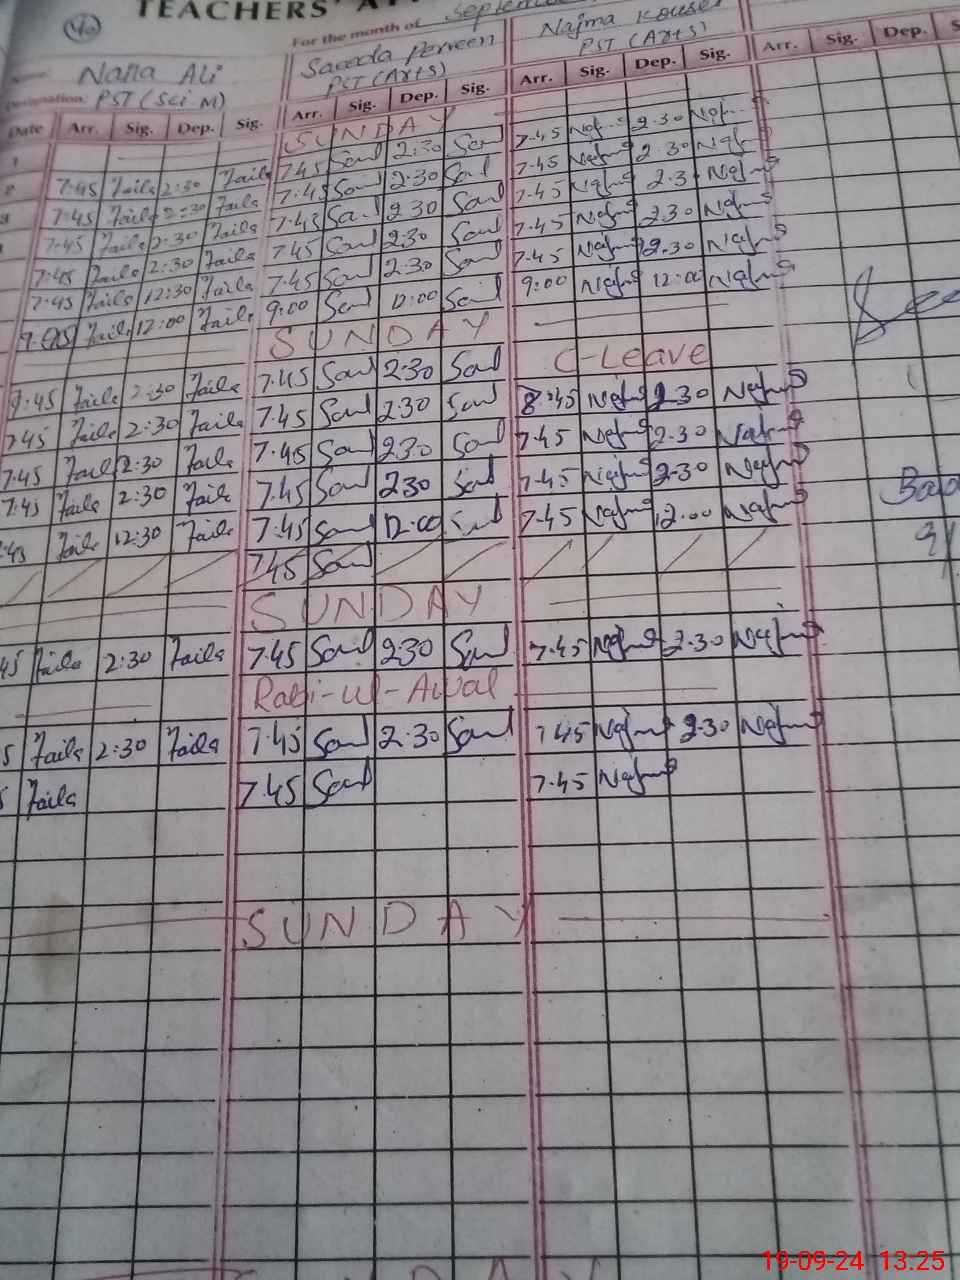 40 TEACHERS' AT
For the month of September
Name: Naila Ali Saeeda Parveen Najma Kouser
Designation: PST (Sci M) PST (Arts) PST (Arts)
Date Arr. Sig. Dep. Sig. Arr. Sig. Dep. Sig. Arr. Sig. Dep. Sig. Arr. Sig. Dep. S
1 SUNDAY
2 7:45 Naila 2:30 Naila 7:45 Saud 2:30 Saud 7:45 Najma 2:30 Najma
3 7:45 Naila 2:30 Naila 7:45 Saud 2:30 Saud 7:45 Najma 2:30 Najma
7:45 Naila 2:30 Naila 7:45 Saud 2:30 Saud 7:45 Najma 2:3 Najma
7:45 Naila 2:30 Naila 7:45 Saud 2:30 Saud 7:45 Najma 2:30 Najma
7:45 Naila 12:30 Naila 7:45 Saud 2:30 Saud 7:45 Najma 12:30 Najma
Naila 12:00 Naila 9:00 Saud 12:00 Saud 9:00 Najma 12:00 Najma
SUNDAY
7:45 Naila 2:30 Naila 7:45 Saud 2:30 Saud C-Leave
7:45 Naila 2:30 Naila 7:45 Saud 2:30 Saud 8:45 Najma 2:30 Najma
7:45 Naila 2:30 Naila 7:45 Saud 2:30 Saud 7:45 Najma 2:30 Najma
7:45 Naila 2:30 Naila 7:45 Saud 2:30 Saud 7:45 Najma 2:30 Najma
:45 Naila 12:30 Naila 7:45 Saud 12:00 Saud 7:45 Najma 12:00 Najma
7:45 Saud
SUNDAY
45 Naila 2:30 Naila 7:45 Saud 2:30 Saud 7:45 Najma 2:30 Najma
Rabi-ul-Awal
5 Naila 2:30 Naila 7:45 Saud 2:30 Saud 7:45 Najma 2:30 Najma
5 Naila 7:45 Saud 7:45 Najma
SUNDAY
DAY
19-09-24 13.25